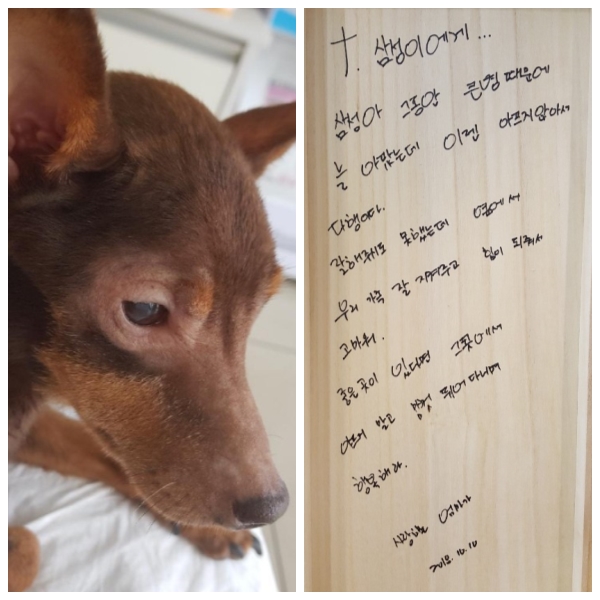 †. 삼성이에게...
삼성아 그동안 큰병 때문에
늘 아팠는데 이젠 아프지 않아서
다행이다.
잘해줘도 못했는데 옆에서
우리 가족 잘 지켜주고 힘이 되줘서
고마워.
좋은 곳이 있다면 그곳에서
아프지 말고 껑껑 뛰어 다니며
행복해라.
사랑하는 엄마가
2018. 10. 10